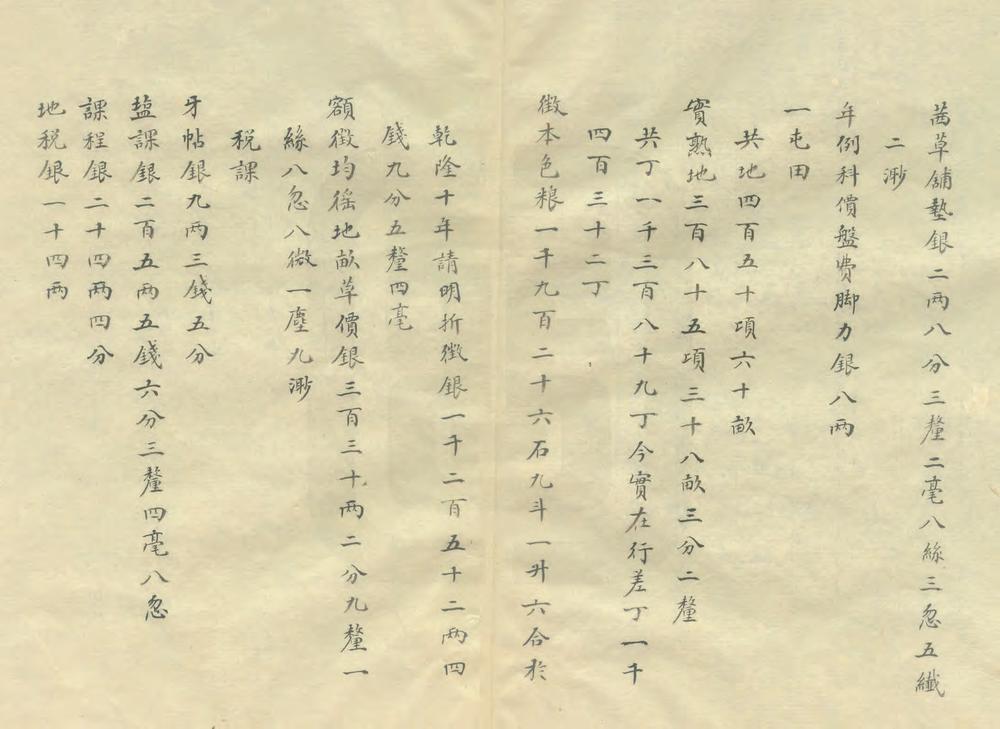 茜草舖墊銀二两八分三釐二毫八絲三忽五纖
二渺
年例科價盤費脚力銀八两
一屯田
共地四百五十項六十畝
實熟地三百八十五項三十八畝三分二釐
共丁一千三百八十九丁今實在行差丁一千
四百三十二丁
徴本色粮一千九百二十六石九斗一升六合於
乾隆十年請明折徴銀一千二百五十二两四
錢九分五釐四毫
額徴均徭地畝草價銀三百三十两二分九釐一
絲八忽八微一塵九渺
税課
牙帖銀九两三錢五分
塩課銀二百五两五錢六分三釐四毫八忽
課程銀二十四两四分
地税銀一十四两